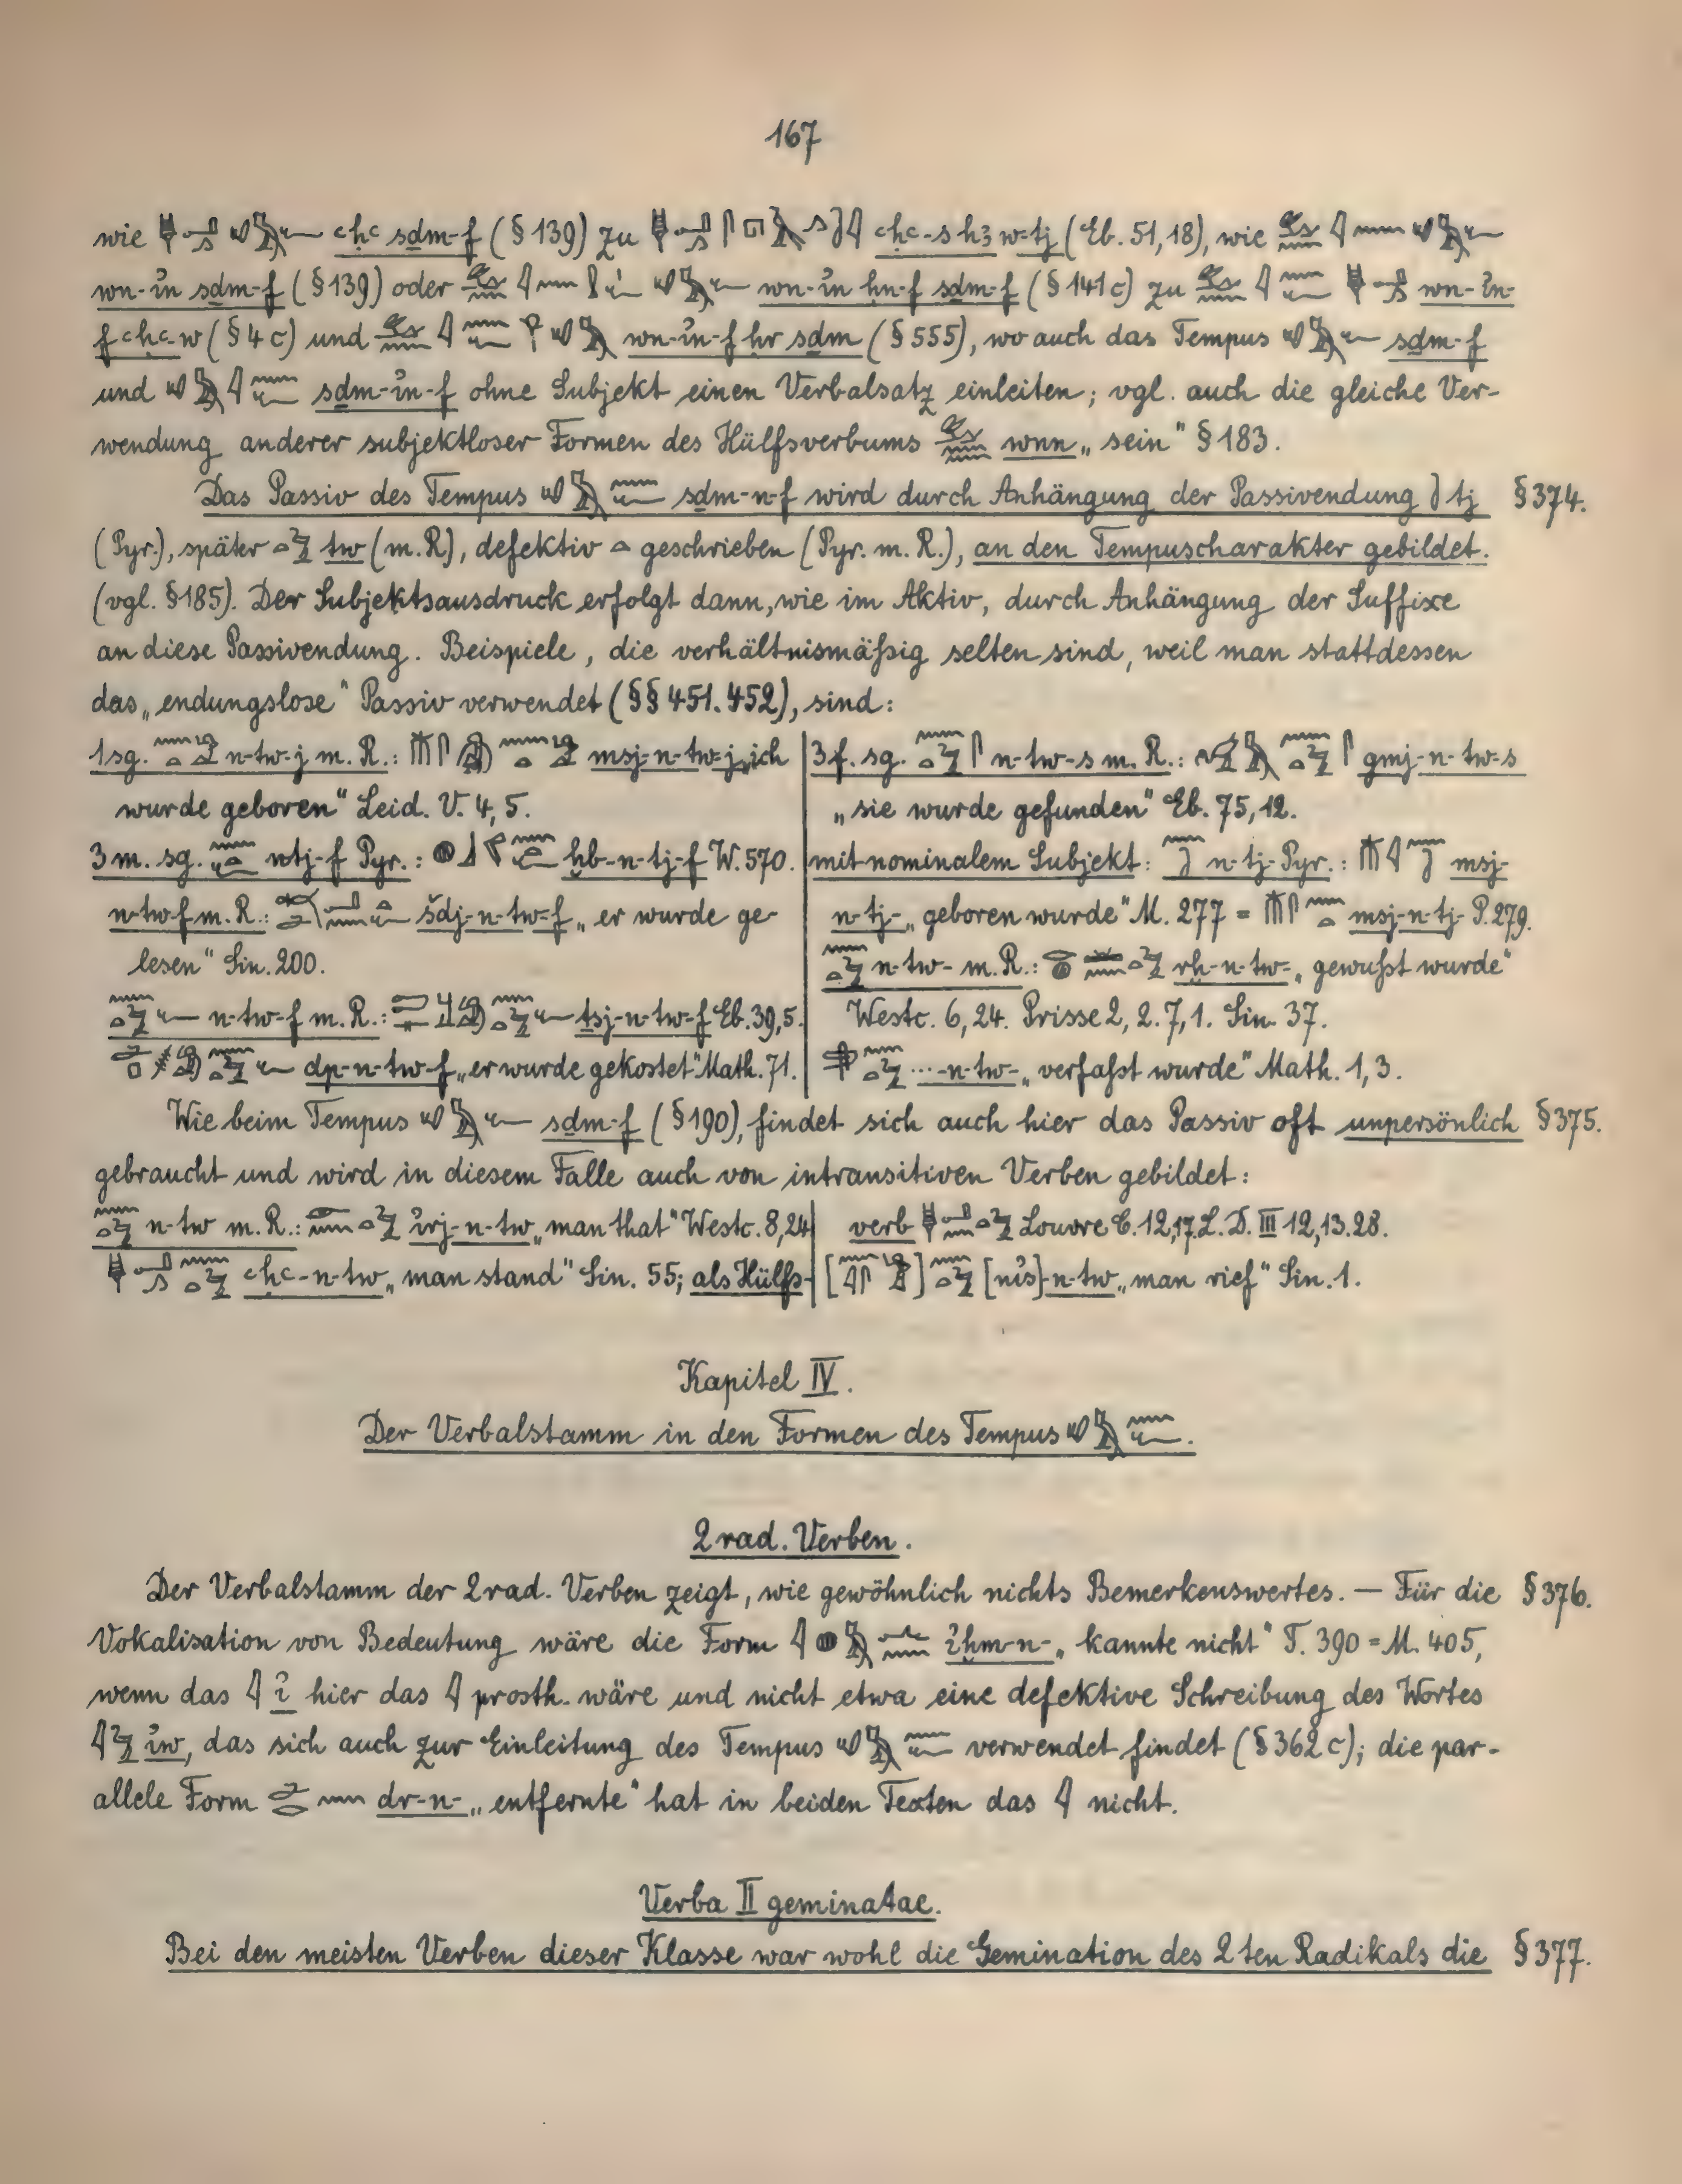 167
wie ꜥḥꜥ sḏm-f (§139) zu ꜥḥꜥ-s hꜣw-tj (Eb. 51,18), wie
wn-ỉn sḏm-f (§139) oder wn-ỉn ḥn-f sḏm-f (§141c) zu wn-ỉn-
f ꜥḥꜥ-w (§4c) und wn-ỉn-f ḥr sḏm (§555), wo auch das Tempus sḏm-f
und sḏm-ỉn-f ohne Subjekt einen Verbalsatz einleiten; vgl. auch die gleiche Ver-
wendung anderer subjektloser Formen des Hülfsverbums wnn „sein“ §183.
Das Passiv des Tempus sḏm-n-f wird durch Anhängung der Passivendung tj §374.
(Pyr.), später tw (m.R), defektiv geschrieben (Pyr. m. R.), an den Tempuscharakter gebildet.
(vgl. §185). Der Subjektsausdruck erfolgt dann, wie im Aktiv, durch Anhängung der Suffixe
an diese Passivendung. Beispiele, die verhältnismäßig selten sind, weil man stattdessen
das „endungslose“ Passiv verwendet (§§451.452), sind:
1sg. n-tw-j m. R.: msj-n-tw-j „ich
wurde geboren“ Leid. V. 4,5.
3m. sg. ntj-f Pyr.: ḫb-n-tj-f W. 570.
n-tw-f m. R.: šdj-n-tw-f „er wurde ge-
lesen“ Sin. 200.
n-tw-f m. R.: ṯsj-n-tw-f Eb. 39,5.
dp-n-tw-f „er wurde gekostet“ Math. 71.
3f. sg. n-tw-s m. R.: gmj-n-tw-s
„sie wurde gefunden“ Eb. 75,12.
mit nominalem Subjekt: n-tj- Pyr.: msj-
n-tj- „geboren wurde“ M. 277 = msj-n-tj- P. 279.
n-tw- m. R.: rḫ-n-tw- „gewußt wurde“
Westc. 6,24. Prisse 2,2. 7,1. Sin. 37.
...-n-tw- „verfaßt wurde“ Math. 1,3.
Wie beim Tempus sḏm-f (§190), findet sich auch hier das Passiv oft unpersönlich §375.
gebraucht und wird in diesem Falle auch von intransitiven Verben gebildet:
n-tw m. R.: ỉrj-n-tw „man that“ Westc. 8,24
ꜥḥꜥ-n-tw „man stand“ Sin. 55; als Hülfs-
verb Louvre C. 12,17. L. D. III 12,13.28.
[nỉs]-n-tw „man rief“ Sin. 1.
Kapitel IV.
Der Verbalstamm in den Formen des Tempus
2rad. Verben.
Der Verbalstamm der 2rad. Verben zeigt, wie gewöhnlich nichts Bemerkenswertes. — Für die §376.
Vokalisation von Bedeutung wäre die Form ỉḫm-n- „kannte nicht“ T. 390 = M. 405,
wenn das ỉ hier das prosth. wäre und nicht etwa eine defektive Schreibung des Wortes
ỉw, das sich auch zur Einleitung des Tempus verwendet findet (§362c); die par-
allele Form dr-n- „entfernte“ hat in beiden Texten das nicht.
Verba II geminatae.
Bei den meisten Verben dieser Klasse war wohl die Gemination des 2ten Radikals die §377.